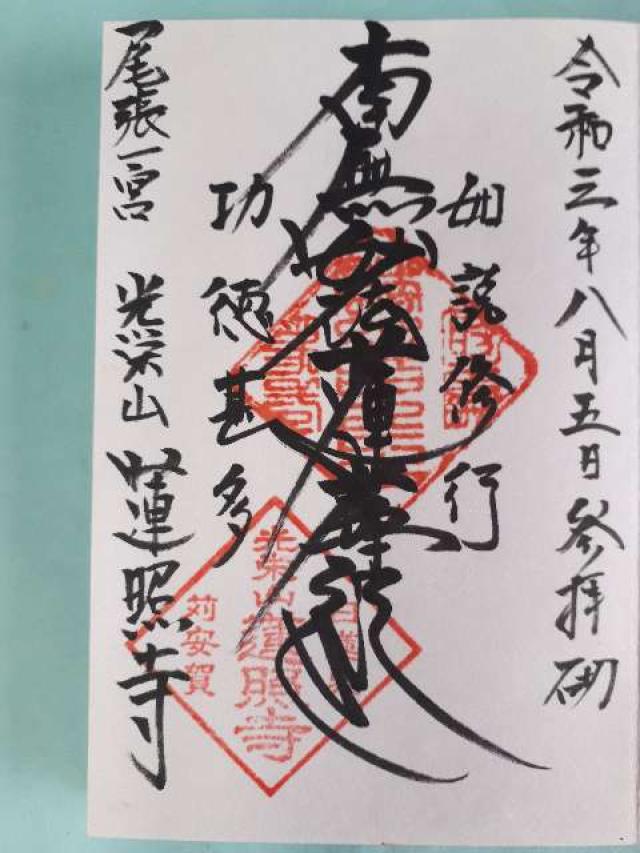 令和三年八月五日参拝
如説修行
南無妙法蓮華経
功徳甚多
尾張一宮 光栄山 蓮照寺
光栄山
蓮照寺
苅安賀